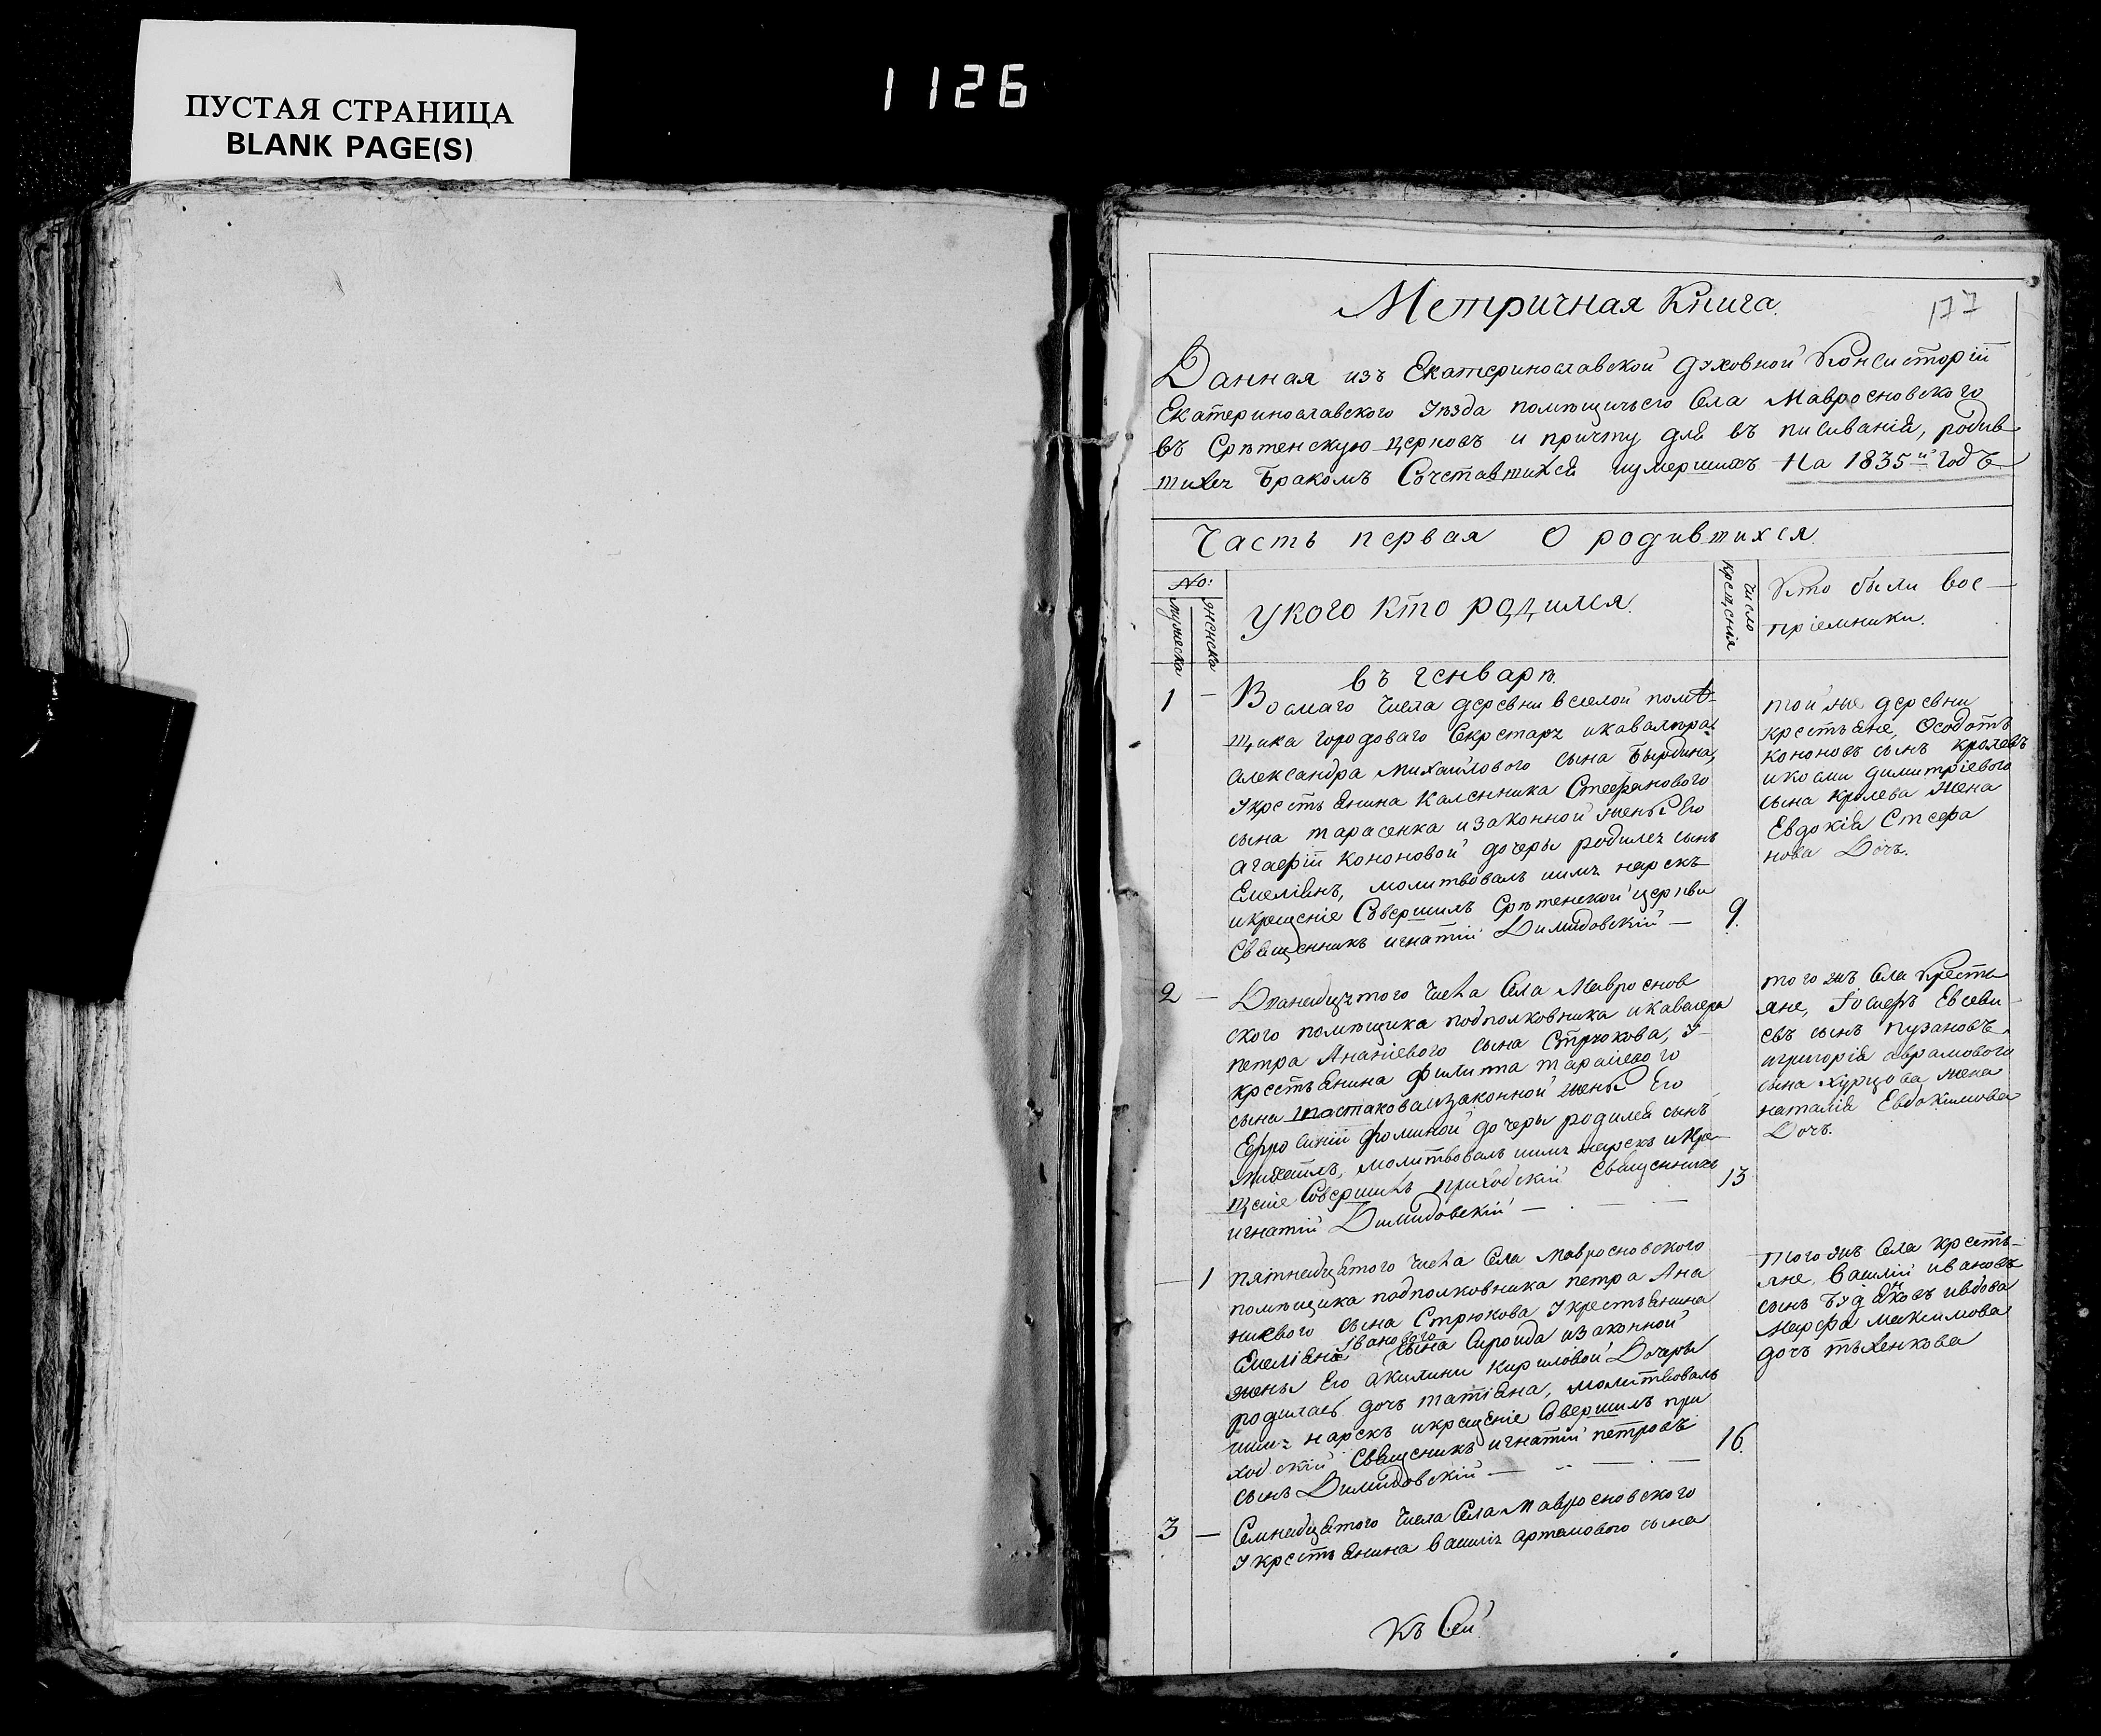 ПУСТАЯ СТРАНИЦА
BLANK PAGE(S)
1126
177
Метричная Книга.
Данная изъ Екатеринославской духовной Консисторіи
Екатеринославского уѣзда помѣщичьего Села Мавросновского
въ Срѣтенскую церковь и причту для въ писиванія, родив
шихся Бракомъ Сочетавшихся иумершихъ На 1835й Годъ
Часть первая О родившихся
No:
мужеска
женска
У кого кто родился.
Число
крещенія
Кто были вос-
пріемники.
въ генварѣ.
1 – Восмаго Числа деревни веселой помѣ-
щика городоваго Секретаря икавалера
Александра Михайлового сына
У крестьянина Каленника Стефанового
сына тарасенка изаконной жены Его
Агафіи Кононовой дочеры родился сынъ
Емеліянъ, молитвовалъ имя нарекъ
икрещеніе Совершилъ Срѣтенской церкви
Священникъ игнатій Димидовскій — 9.
той же деревни
крестьяне, Ѳеодотъ
Кононовъ сынъ кролевъ
икосми димитріевого
сына кролева жена
Евдокія Стефа
нова Дочь.
2 – Дванадцятого Числа Села Мавроснов
ского помѣщика подполковника икавалера
петра Ананіевого сына Стрюкова, у
крестьянина филиппа тарасіевого
сына изаконной жены Его
Ефросиніи фоминой дочеры родился сынъ
Михаилъ, молитвовалъ имя нарекъ икре-
щеніе Совершилъ приходскій Священникъ 13.
игнатій Димидовскій —
того жъ Села Кресть
яне, Іосифъ Евсеви-
евъ сынъ пузановъ
игригорія аврамового
сына Хурцова жена
наталія Евдокимова
Дочь.
1 пятнадцятого Числа Села Мавросновского
помѣщика подполковника петра Ана
ниевого сына Стрюкова У крестьянина
Емеліяна Іванового сына Сироида изаконной
жены Его Акилини Кириловой Дочеры
родилась дочь татіяна, молитвовалъ
имя нарекъ икрещеніе Совершилъ при
ходскій Священникъ игнатій петровъ 16.
сынъ Димидовскій —
того жъ Села кресть-
яне, василій ивановъ
сынъ ивдова
Марфа максимова
дочь
3 – Семнадцятого Числа Села Мавросновского
У крестьянина василія артемового сына
къ Сей